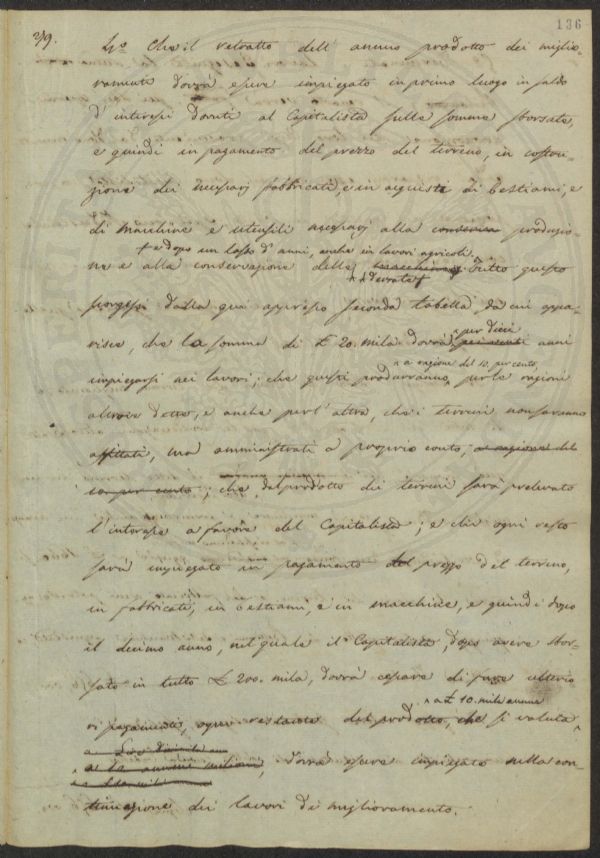 136
29.
4.o Che il retratto dell' annuo prodotto dei miglio-
ramenti dovrà essere impiegato in primo luogo in saldo
d' interessi dovuti al Capitalista sulle somme sborsate,
e quindi in pagamento del prezzo del terreno, in costru-
zione dei necessarj fabbricati, e in acquisti di bestiami, e
di macchine e utensili necessarj alla produzio-
+ e dopo un lasso d' anni, anche in lavori agricoli.
ne e alla conservazione delle macchine. Tutto questo
derrate +
scorgesi dalla qui appresso seconda tabella, da cui appa-
per dieci
risce, che la somma di £ 20. mila dovrà anni
a ragione del 10. per cento,
impiegarsi nei lavori; che questi produrranno, per le ragioni
altrove dette, e anche per l' altra, che i terreni non saranno
affittati, ma amministrati a proprio conto, a ragione del
dieci per cento; che dal prodotto dei terreni sarà prelevato
l' interesse a favore del Capitalista; e che ogni resto
sarà impiegato in pagamento del prezzo del terreno,
in fabbricati, in bestiami, e in macchine, e quindi dopo
il decimo anno, nel quale il Capitalista, dopo avere sbor-
sato in tutto £ 200. mila, dovrà cessare di fare ulterio
a £ 10. mila annue
ri pagamenti, ogni restante del prodotto, che si valuta
dovrà essere impiegato nella con-
tinuazione dei lavori di miglioramento.